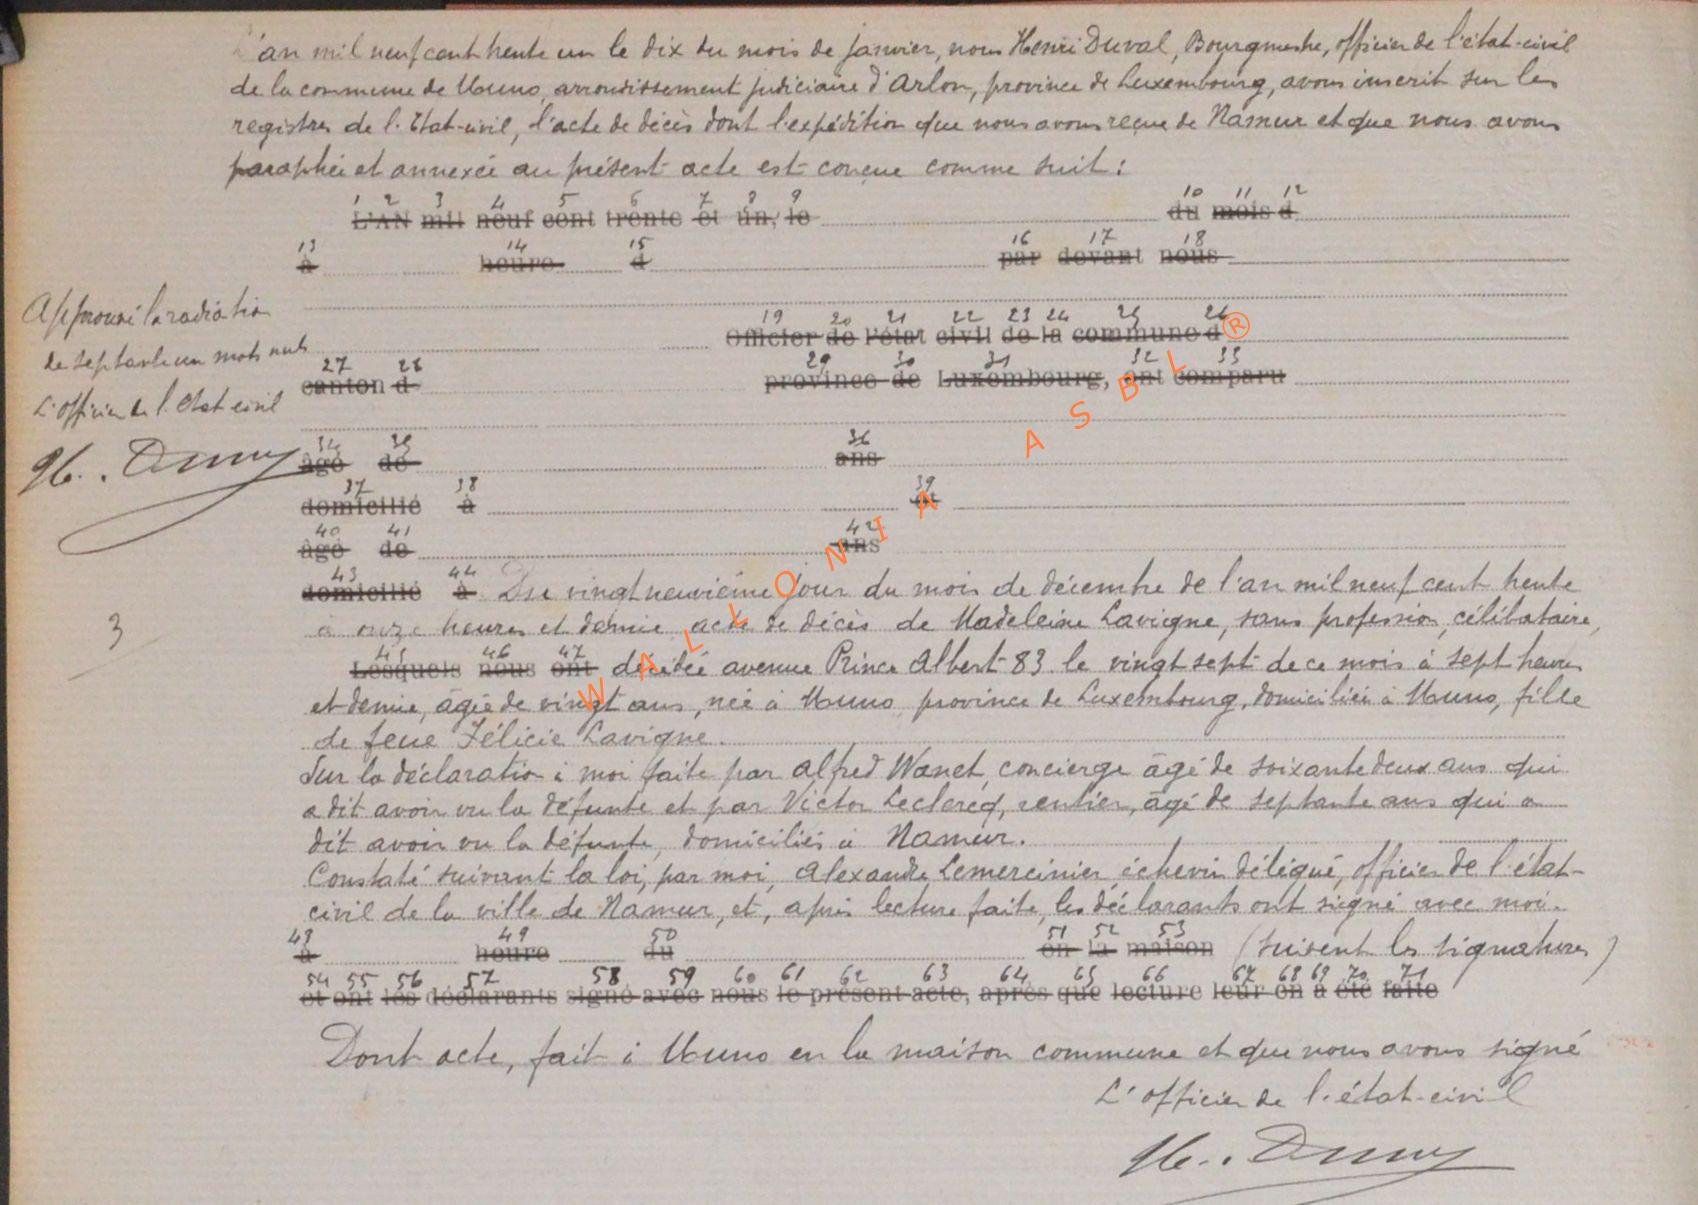 L'an mil neuf cent trente un le dix du mois de janvier, nous Henri Duval, Bourgmestre, officier de l'état-civil
de la commune de Muno, arrondissement judiciaire d'Arlon, province de Luxembourg, avons inscrit sur les
registres de l'Etat-civil, l'acte de décès dont l'expédition que nous avons reçue de Namur et que nous avons
paraphée et annexée au présent acte est conçue comme suit :
1 2 3 4 5 6 7 8 9 10 11 12
L'AN mil neuf cent trente et un, le du mois d
13 14 15 16 17 18
à heure d par devant nous
Approuvé la radiation
19 20 21 22 23 24 25 26
Officier de l'état civil de la commune d ®
de septante un mots nuls
27 28 29 30 31 32 33
canton d province de Luxembourg, ont comparu
L'officier de l'Etat civil
34 35 36
âgé de ans
H. Duval
37 38 39
domicilié à et
40 41 42
âgé de ans
43 44
domicilié à Du vingt neuvième jour du mois de décembre de l'an mil neuf cent trente
3
à onze heures et demie, acte de décès de Madeleine Lavigne, sans profession, célibataire,
45 46 47
Lesquels nous ont décédée avenue Prince Albert 83 le vingt sept de ce mois à sept heures
et demie, âgée de vingt ans, née à Muno, province de Luxembourg, domiciliée à Muno, fille
de feue Félicie Lavigne.
Sur la déclaration à moi faite par Alfred Wanet, concierge âgé de soixante deux ans qui
a dit avoir vu la défunte et par Victor Leclercq, rentier, âgé de septante ans qui a
dit avoir vu la défunte, domiciliés à Namur.
Constaté suivant la loi, par moi, Alexandre Lemercinier, échevin délégué, officier de l'état-
civil de la ville de Namur, et, après lecture faite, les déclarants ont signé avec moi.
48 49 50 51 52 53
à heure du en la maison (suivent les signatures)
54 55 56 57 58 59 60 61 62 63 64 65 66 67 68 69 70 71
et ont les déclarants signé avec nous le présent acte, après que lecture leur en a été faite
Dont acte, fait à Muno en la maison commune et que nous avons signé
L'officier de l'état-civil
H. Duval
WALLONIA ASBL